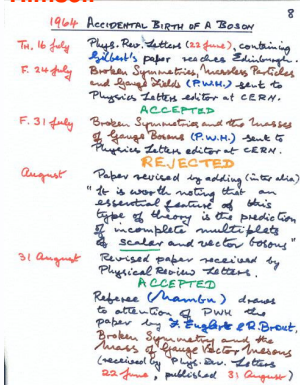 8
1964 ACCIDENTAL BIRTH OF A BOSON
TH. 16 July Phys. Rev. Letters (22 June), containing
Gilbert's paper reaches Edinburgh.
F. 24 July Broken Symmetries, Massless Particles
and Gauge Fields (P.W.H.) sent to
Physics Letters editor at CERN.
ACCEPTED
F. 31 July Broken Symmetries and the Masses
of Gauge Bosons (P.W.H.) sent to
Physics Letters editor at CERN.
REJECTED
August Paper revised by adding (inter alia)
"It is worth noting that an
essential feature of this
type of theory is the prediction
of incomplete multiplets
of scalar and vector bosons"
31 August Revised paper received by
Physical Review Letters.
ACCEPTED
Referee (Nambu) draws
to attention of PWH the
paper by F. Englert & R. Brout,
Broken Symmetry and the
Mass of Gauge Vector Mesons
(received by Phys. Rev. Letters
22 June, published 31 August)